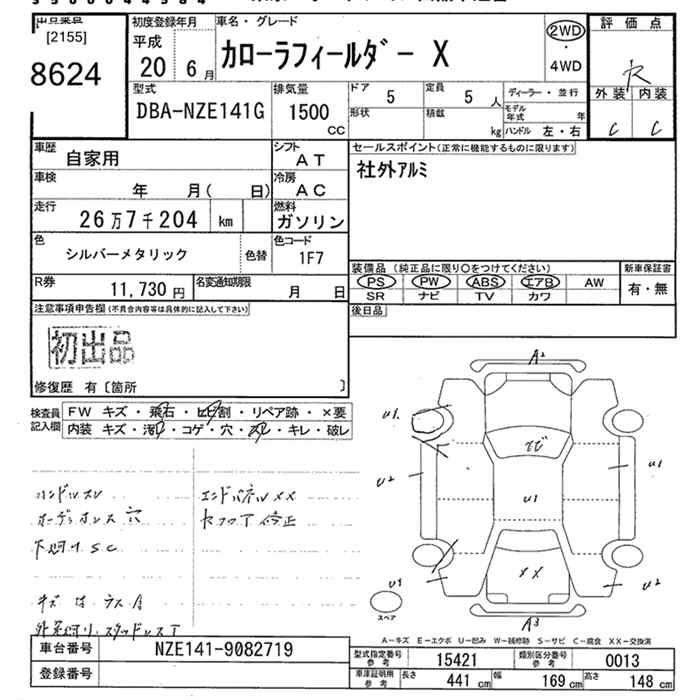 [2155]
8624
初度登録年月
平成 20 年 6 月
車名・グレード
カローラフィールダー X
2WD
・
4WD
評価点
R
外装 内装
C C
型式
DBA-NZE141G
排気量
1500 CC
ドア 5
定員 5 人
形状
積載 kg
ディーラー・並行
モデル年式 年
ハンドル 左・右
車歴 自家用
シフト AT
車検 年 月( 日)
冷房 AC
走行 26万7千204 km
燃料 ガソリン
色 シルバーメタリック
色替
色コード 1F7
R券 11,730 円
名変通知期限 月 日
セールスポイント(正常に機能するものに限ります)
社外アルミ
装備品(純正品に限り〇をつけてください)
PS PW ABS エアB AW
SR ナビ TV カワ
新車保証書
有・無
後日品
注意事項申告欄(不具合内容等は具体的に記入して下さい)
初出品
修復歴 有〔箇所 〕
検査員記入欄
FW キズ・飛石・ヒビ割・リペア跡・×要
内装 キズ・汚れ・コゲ・穴・スレ・キレ・破レ
ハンドルスレ
エンドパネルXX
穴
修正
下廻りSC
A2
U1
U2
U1
U1
XX
U1
U2
A3
スペア
A-キズ E-エクボ U-凹み W-補修跡 S-サビ C-腐食 XX-交換済
車台番号 NZE141-9082719
登録番号
型式指定番号 参考 15421
類別区分番号 参考 0013
車庫証明用 参考 長さ 441 cm 幅 169 cm 高さ 148 cm